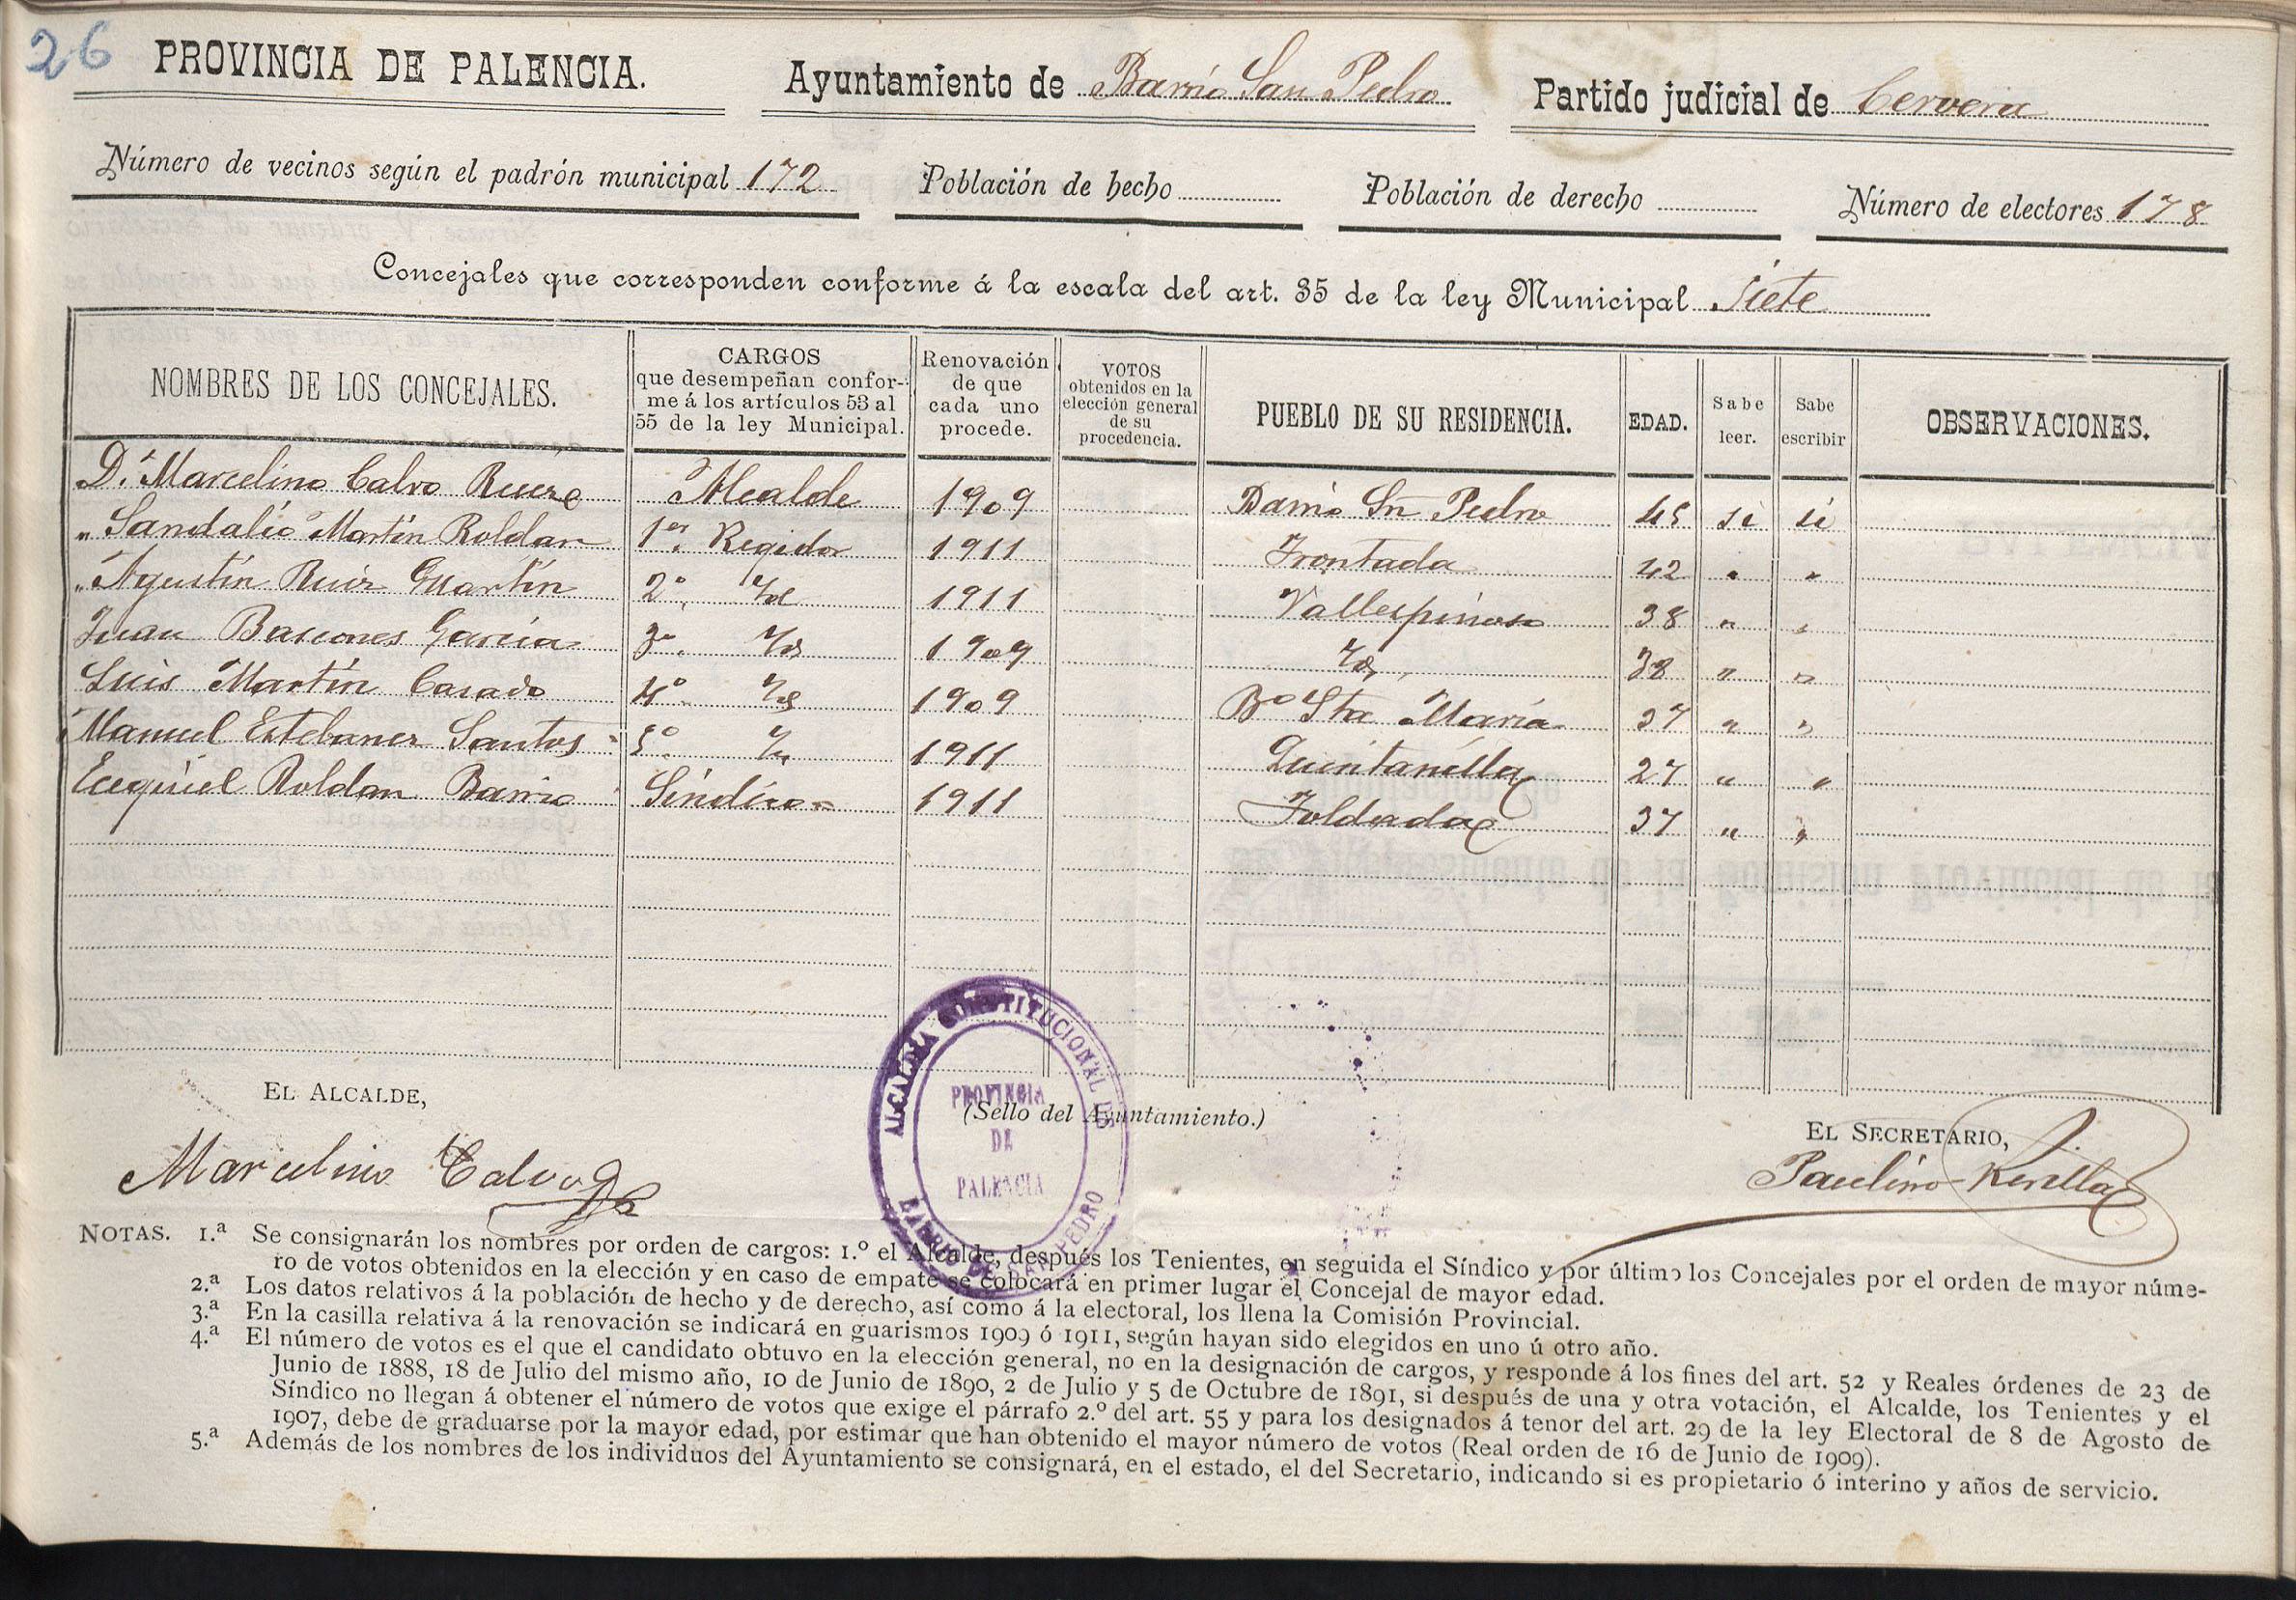 26
PROVINCIA DE PALENCIA. Ayuntamiento de Barrio San Pedro Partido judicial de Cervera
Número de vecinos según el padrón municipal 172 Población de hecho Población de derecho Número de electores 178
Concejales que corresponden conforme á la escala del art. 35 de la ley Municipal Siete
NOMBRES DE LOS CONCEJALES. CARGOS que desempeñan confor- me á los artículos 53 al 55 de la ley Municipal. Renovación de que cada uno procede. VOTOS obtenidos en la elección general de su procedencia. PUEBLO DE SU RESIDENCIA. EDAD. Sabe leer. Sabe escribir OBSERVACIONES.
D. Marcelino Calvo Alcalde 1909 Barrio Sn Pedro 45 si si
" Sandalio Martín Roldan 1er. Regidor 1911 Frontada 42 " "
" Agustín Ruiz Martín 2º Id 1911 Vallespinoso 38 " "
Juan Bascones García 3º Id 1909 Id, 38 " "
Luis Martín Casado 4º Id 1909 Bº Sta María 37 " "
Manuel Estebanez Santos 5º Id 1911 Quintanilla 27 " "
Ecequiel Roldan Barrio Síndico 1911 Foldada 37 " "
EL ALCALDE,
Marcelino Calvo
(Sello del Ayuntamiento.)
ALCALDIA CONSTITUCIONAL DE
PROVINCIA
DE
PALENCIA
BARRIO DE SAN PEDRO
EL SECRETARIO,
Paulino
NOTAS. 1.ª Se consignarán los nombres por orden de cargos: 1.º el Alcalde, después los Tenientes, en seguida el Síndico y por último los Concejales por el orden de mayor núme-
ro de votos obtenidos en la elección y en caso de empate se colocará en primer lugar el Concejal de mayor edad.
2.ª Los datos relativos á la población de hecho y de derecho, así como á la electoral, los llena la Comisión Provincial.
3.ª En la casilla relativa á la renovación se indicará en guarismos 1909 ó 1911, según hayan sido elegidos en uno ú otro año.
4.ª El número de votos es el que el candidato obtuvo en la elección general, no en la designación de cargos, y responde á los fines del art. 52 y Reales órdenes de 23 de
Junio de 1888, 18 de Julio del mismo año, 10 de Junio de 1890, 2 de Julio y 5 de Octubre de 1891, si después de una y otra votación, el Alcalde, los Tenientes y el
Síndico no llegan á obtener el número de votos que exige el párrafo 2.º del art. 55 y para los designados á tenor del art. 29 de la ley Electoral de 8 de Agosto de
1907, debe de graduarse por la mayor edad, por estimar que han obtenido el mayor número de votos (Real orden de 16 de Junio de 1909).
5.ª Además de los nombres de los individuos del Ayuntamiento se consignará, en el estado, el del Secretario, indicando si es propietario ó interino y años de servicio.